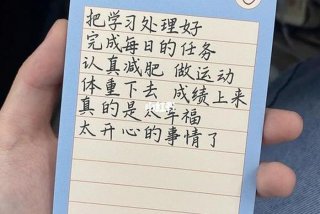 把学习处理好
完成每日的任务
认真减肥 做运动
体重下去 成绩上来
真的是太幸福
太开心的事情了